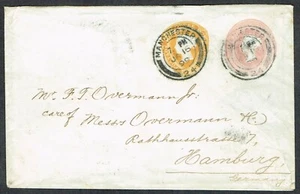 MANCHESTER
24
24
Mr. F. T. Overmann Jr.
care of Messrs Overmann
Rathhausstrasse 7,
Hamburg,
Germany